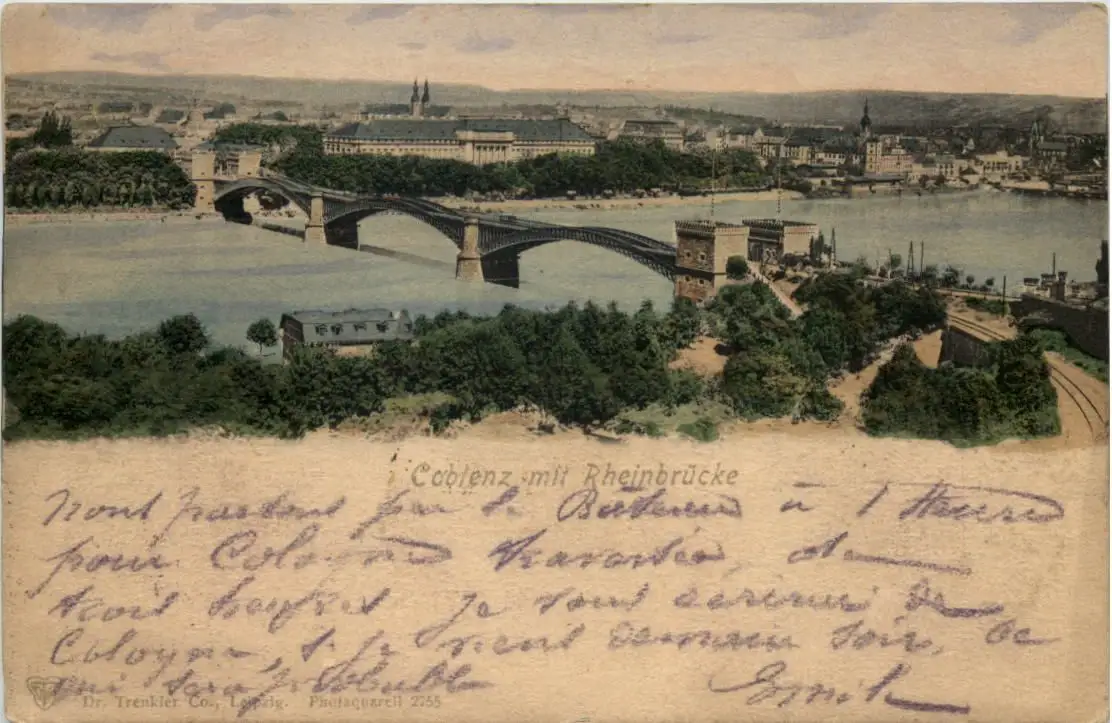 Coblenz mit Rheinbrücke
Nous partons par le Bateau à 1 Heure
pour Cologne traversée de
trois heures je vous écrirai de
Cologne, si je viens demain soir, ce
qui sera probable Emile
Dr. Trenkler Co., Leipzig. Photaquarell 2755